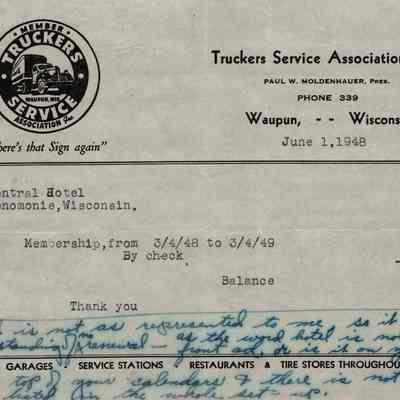 MEMBER
TRUCKERS
WAUPUN, WIS.
SERVICE
ASSOCIATION Inc.
here's that Sign again"
Truckers Service Association
PAUL W. MOLDENHAUER, Pres.
PHONE 339
Waupun, - - Wiscons
June 1,1948
entral Hotel
enomonie,Wisconsin.
Membership,from 3/4/48 to 3/4/49
By check
Balance
Thank you
is not as represented to me so it
standing renewal - as the word hotel is no
front ad, or is it on
GARAGES · SERVICE STATIONS · RESTAURANTS & TIRE STORES THROUGHOU
top of your calendars & there is not
hotel in the whole set up.